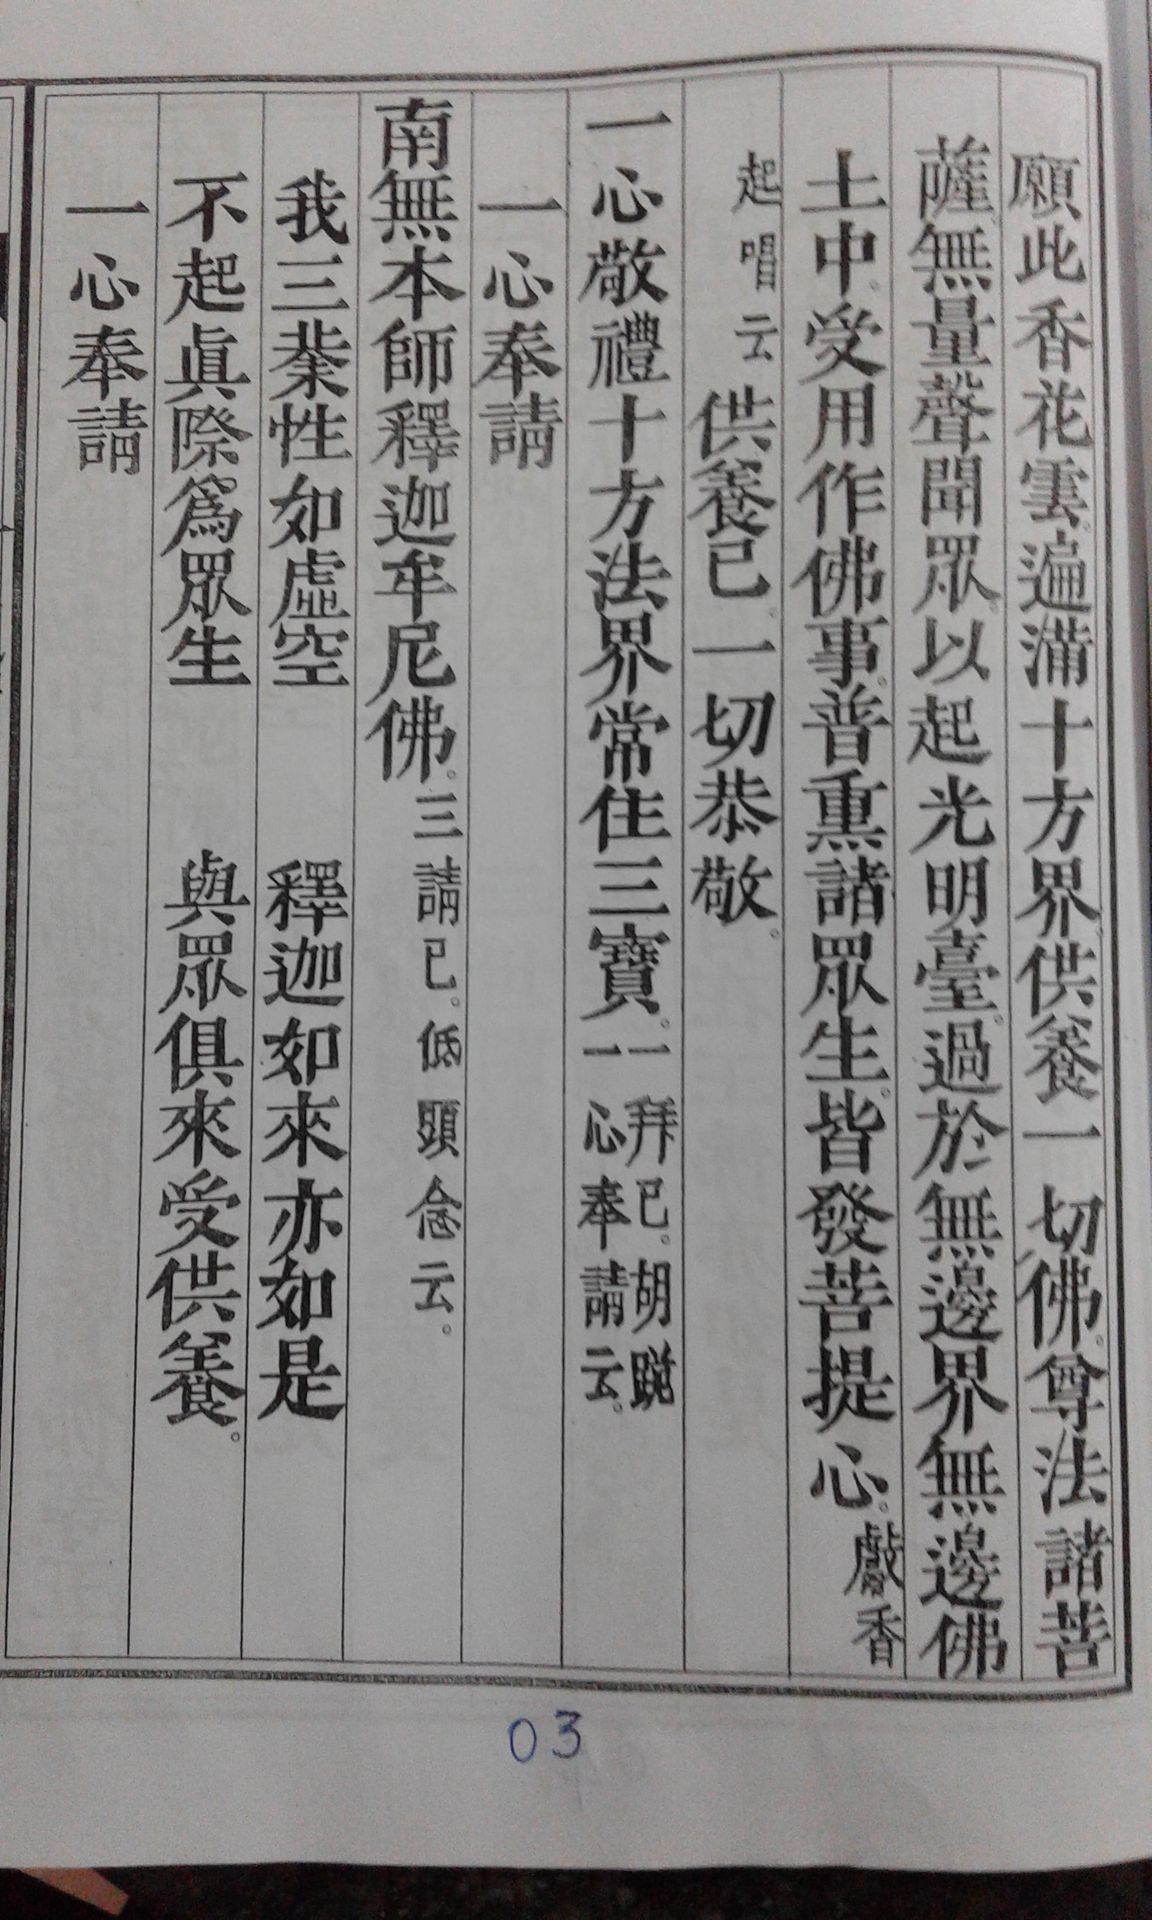 願此香花雲。遍滿十方界。供養一切佛。尊法諸菩
薩。無量聲聞眾。以起光明臺。過於無邊界無邊佛
土中。受用作佛事。普熏諸眾生。皆發菩提心。獻香
起唱云 供養已。一切恭敬。
一心敬禮十方法界常住三寶。一拜已。胡跪
一心奉請云。
一心奉請
南無本師釋迦牟尼佛。三請已。低頭念云。
我三業性如虛空 釋迦如來亦如是
不起眞際爲眾生 與眾俱來受供養。
一心奉請
03